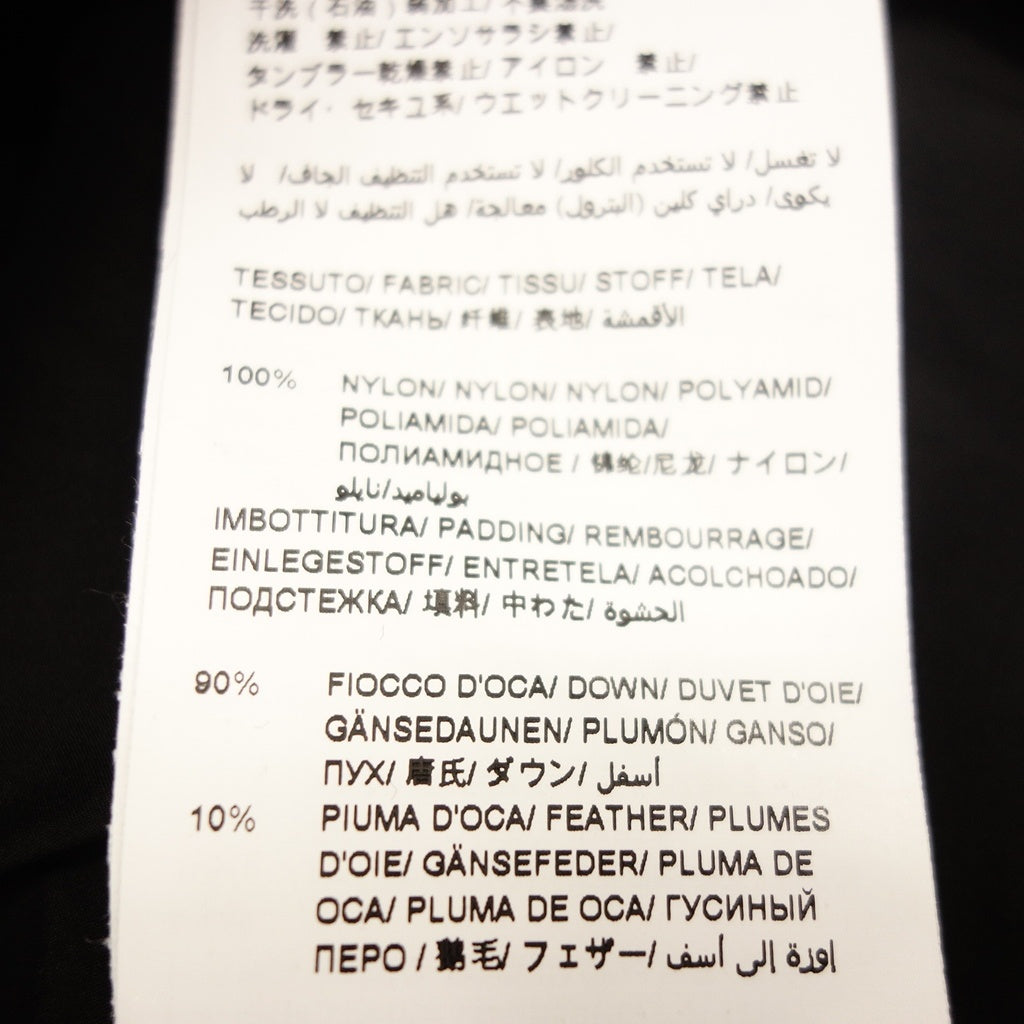 干洗 ( 石油 )
洗濯 禁止/ エンソサラシ禁止/
タンブラー乾燥禁止/ アイロン 禁止/
ドライ・セキユ系/ ウエットクリーニング禁止
لا تغسل/ لا تستخدم الكلور/ لا تستخدم التنظيف الجاف/ لا
يكوى/ دراي كلين (البترول) معالجة/ هل التنظيف لا الرطب
TESSUTO/ FABRIC/ TISSU/ STOFF/ TELA/
TECIDO/ ТКАНЬ/ 纤维/ 表地/ الأقمشة
100% NYLON/ NYLON/ NYLON/ POLYAMID/
POLIAMIDA/ POLIAMIDA/
ПОЛИАМИДНОЕ / 锦纶/尼龙/ ナイロン/
بولياميد/نايلو
IMBOTTITURA/ PADDING/ REMBOURRAGE/
EINLEGESTOFF/ ENTRETELA/ ACOLCHOADO/
ПОДСТЕЖКА/ 填料/ 中わた/ الحشوة
90% FIOCCO D'OCA/ DOWN/ DUVET D'OIE/
GÄNSEDAUNEN/ PLUMÓN/ GANSO/
ПУХ/ 唐氏/ ダウン/ أسفل
10% PIUMA D'OCA/ FEATHER/ PLUMES
D'OIE/ GÄNSEFEDER/ PLUMA DE
OCA/ PLUMA DE OCA/ ГУСИНЫЙ
ПЕРО / 鹅毛/ フェザー/ اوزة إلى أسف